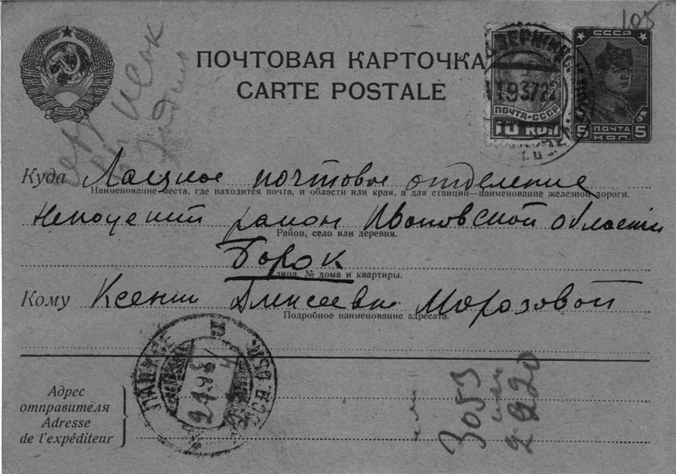 105
СССР
ПОЧТОВАЯ КАРТОЧКА
CARTE POSTALE
11 9 37 22
ПОЧТА-СССР
10 КОП
5 ПОЧТА 5
КОП.
Куда Лацкое почтовое отделение
Наименование места, где находится почта, и области или края, а для станции-наименование железной дороги.
район Ивановской области
Район, село или деревня.
Борок
улица, № дома и квартиры.
Кому Ксении Алексеевне Морозовой
Подробное наименование адресата.
Адрес
отправителя
Adresse
de l'expéditeur
3053
или
2220